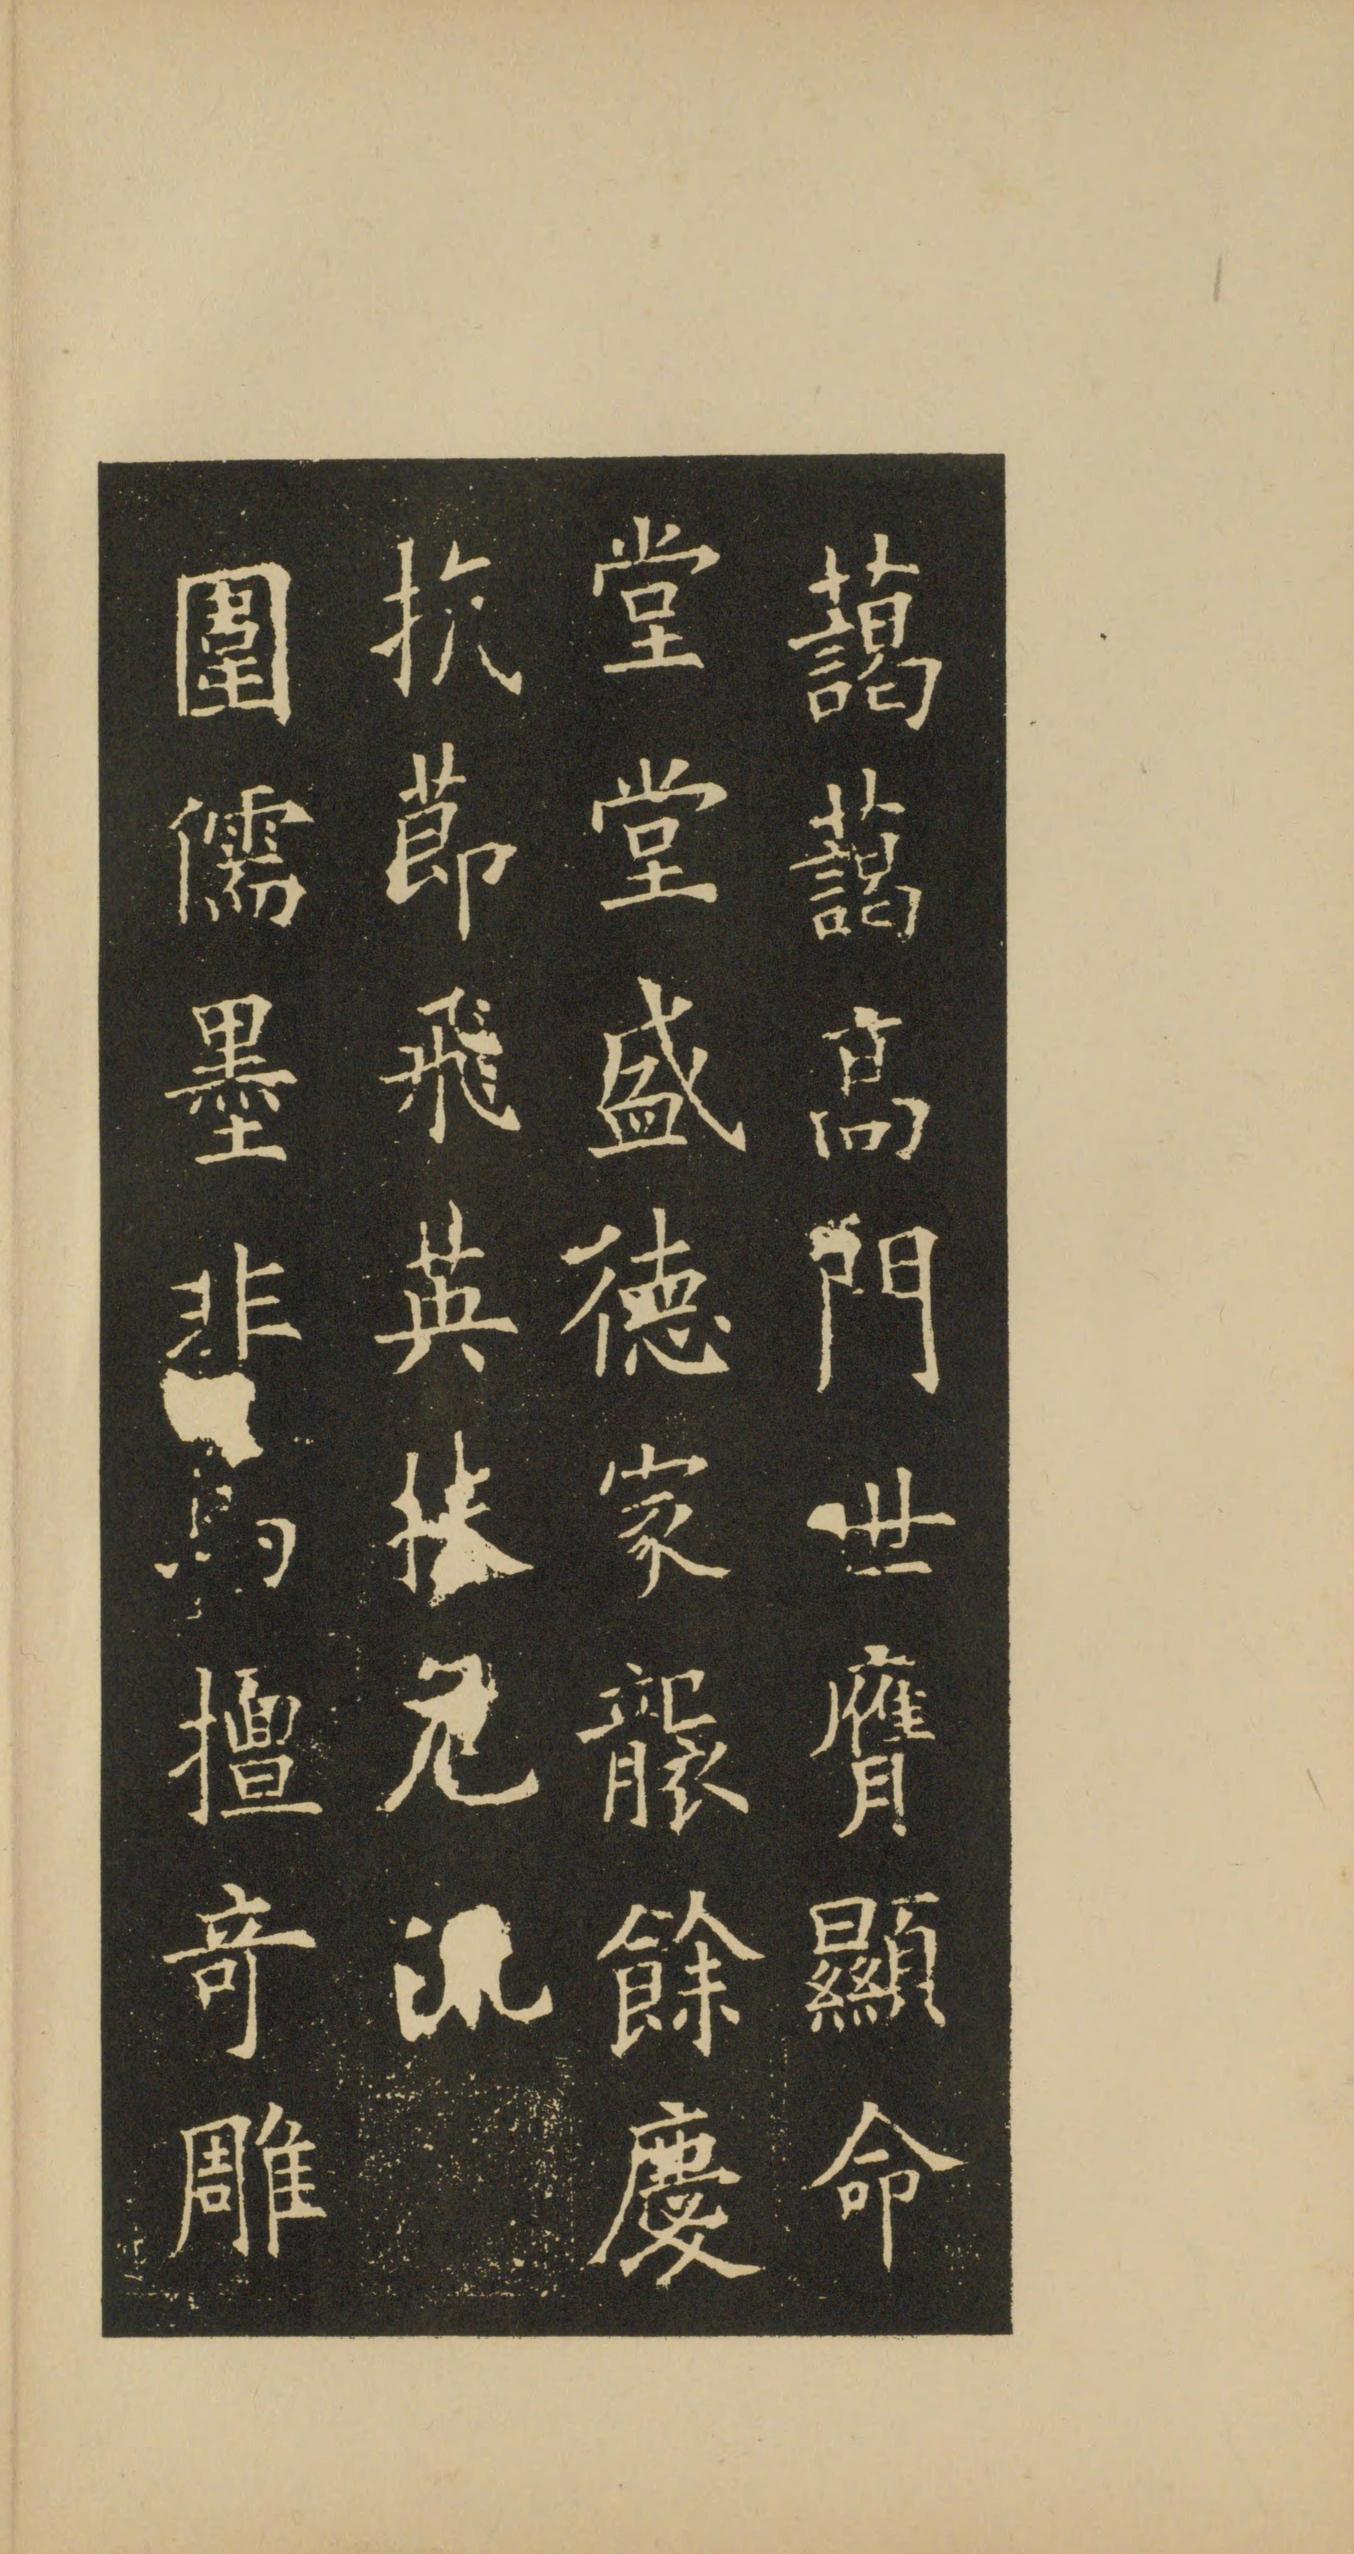 藹藹高門世膺顯命
堂堂盛德家襲餘慶
抗節飛英扶危
圍儒墨非擅奇雕